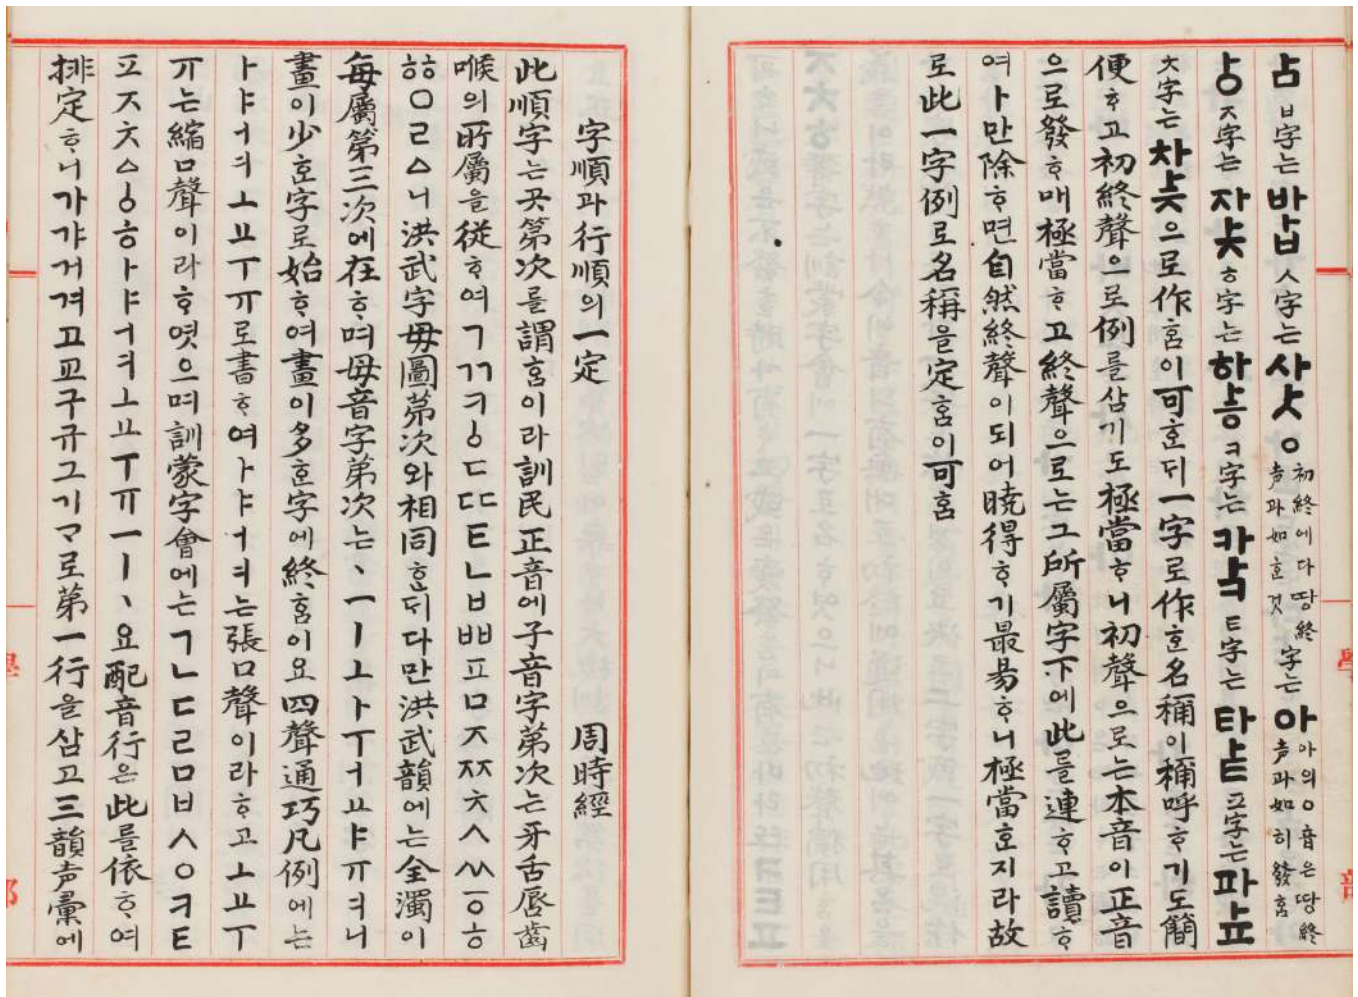 ᅡᆷ ㅂ字는 바ᅡᆸ ㅅ字는 사ᅡᆺ ㅇ 初終에다땅終声과如ᄒᆞᆫ것 字는 아 아의ㅇ音은땅終声과如히發홈
ᅡᇰ ㅈ字는 자ᅡᆽ ㅎ字는 하ᅡᇂ ㅋ字는 카ᅡᆿ ㅌ字는 타ᅡᇀ ㅍ字는 파ᅡᇁ
ㅊ字는 차ᅡᆾ으로作홈이可ᄒᆞᆫ디一字로作ᄒᆞᆫ名稱이稱呼ᄒᆞ기도簡
便ᄒᆞ고初終聲으로例를삼기도極當ᄒᆞ니初聲으로는本音이正音
으로發ᄒᆞ매極當ᄒᆞ고終聲으로는그所屬字下에此를連ᄒᆞ고讀ᄒᆞ
여ㅏ만除ᄒᆞ면自然終聲이되어曉得ᄒᆞ기最易ᄒᆞ니極當ᄒᆞᆫ지라故
로此一字例로名稱을定홈이可홈
字順과行順의一定 周時經
此順字는곳第次를謂홈이라訓民正音에子音字第次는牙舌唇齒
喉의所屬을從ᄒᆞ여ㄱㄲㅋㆁㄷㄸㅌㄴㅂㅃㅍㅁㅈㅉㅊㅅㅆㆆㅎ
ㆅㅇㄹㅿ니洪武字母圖第次와相同ᄒᆞᆫ디다만洪武韻에는全濁이
每屬第三次에在ᄒᆞ며母音字第次는ㆍㅡㅣㅗㅏㅜㅓㅛㅑㅠㅕ니
畫이少ᄒᆞᆫ字로始ᄒᆞ여畫이多ᄒᆞᆫ字에終홈이요四聲通巧凡例에는
ㅏㅑㅓㅕㅗㅛㅜㅠ로書ᄒᆞ여ㅏㅑㅓㅕ는張口聲이라ᄒᆞ고ㅗㅛㅜ
ㅠ는縮口聲이라ᄒᆞ엿으며訓蒙字會에는ㄱㄴㄷㄹㅁㅂㅅㅇㅋㅌ
ㅍㅈㅊㅿㆁㅎㅏㅑㅓㅕㅗㅛㅜㅠㅡㅣㆍ요配音行은此를依ᄒᆞ여
排定ᄒᆞ니가갸거겨고교구규그기ᄀᆞ로第一行을삼고三韻声彙에
學
部